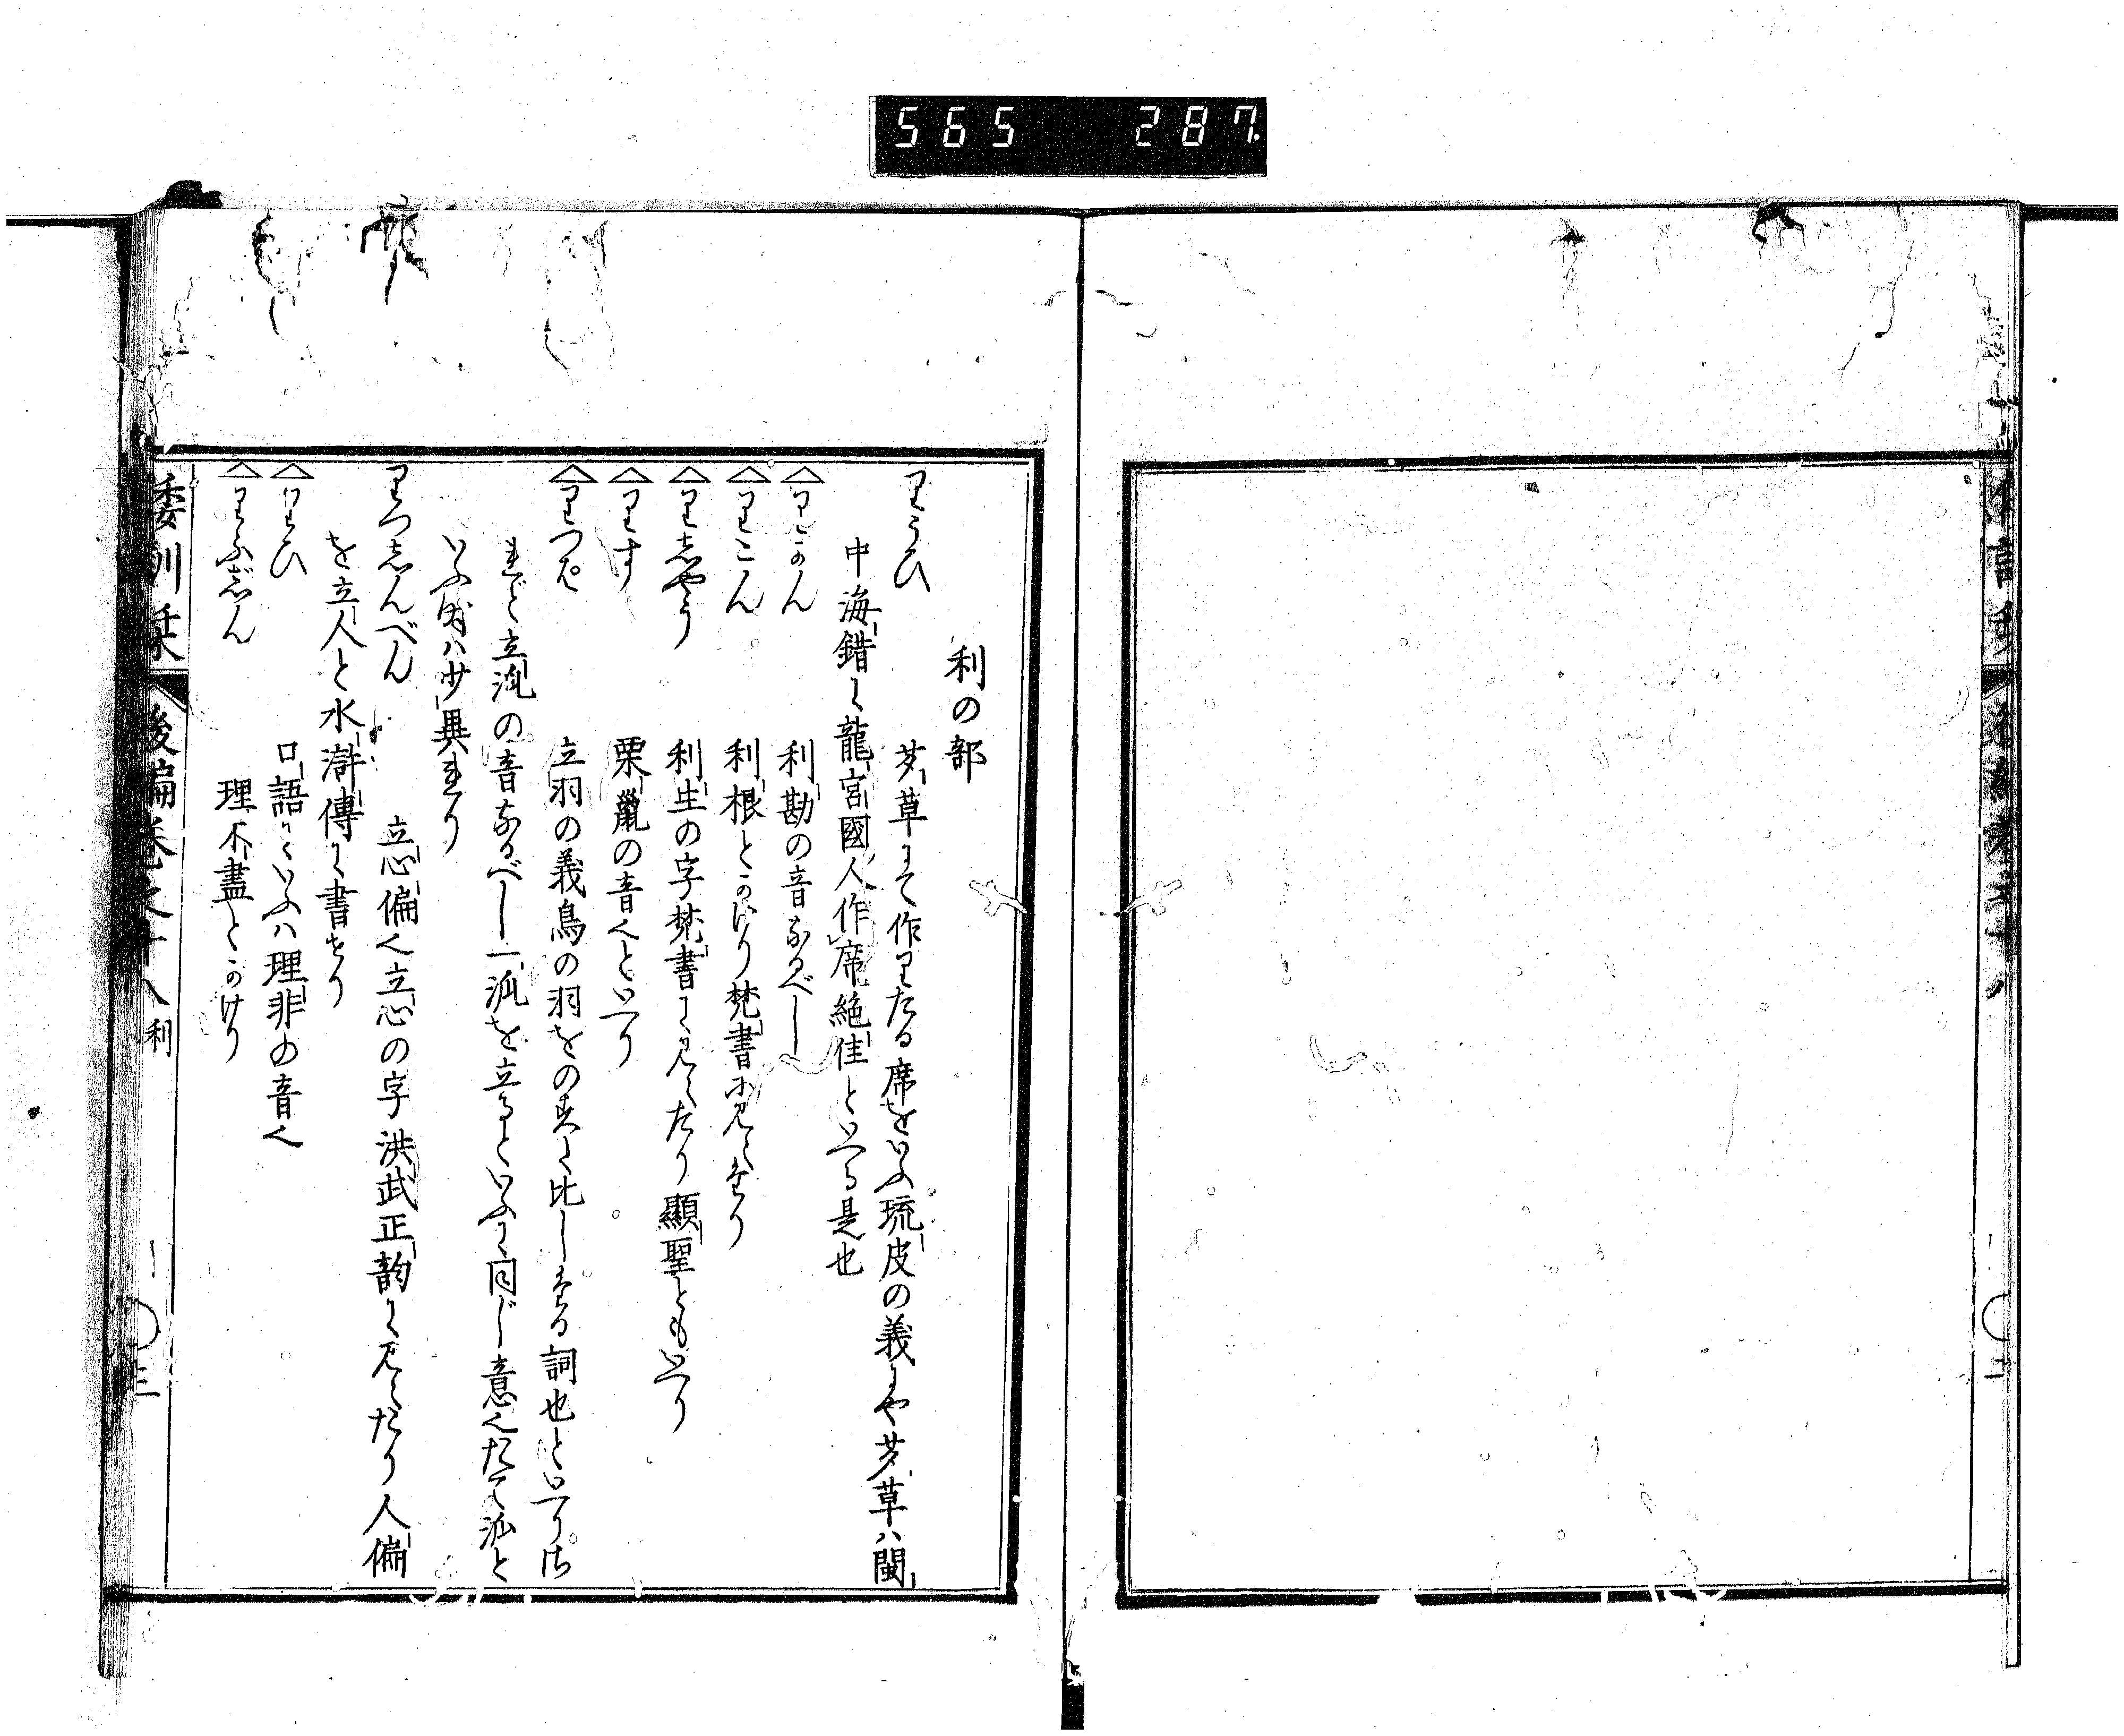 565 287
利の部
りうひ 芏草にて作りたる席をいふ琉皮の義にや芏草ハ閩
中海錯に龍宮國人作席絶佳といへる是也
△りかん 利勘の音なるべし
△りこん 利根とかけり梵書に見えたり
△りしやう 利生の字梵書に見えたり顯聖ともいへり
△りす 栗鼠の音也といへり
△りつぱ 立羽の義鳥の羽をのすに比したる詞也といへりされ
ど立派の音なるべし一派を立るといふに同じ意也たて派と
いふ時ハ少し異れり
りつしんべん 立心偏也立心の字洪武正韵に見えたり人偏
を立人と水滸傳に書せり
△りひ 口語にいふハ理非の音也
△りふじん 理不盡とかけり
倭訓栞 後編巻之十八 利 ○三